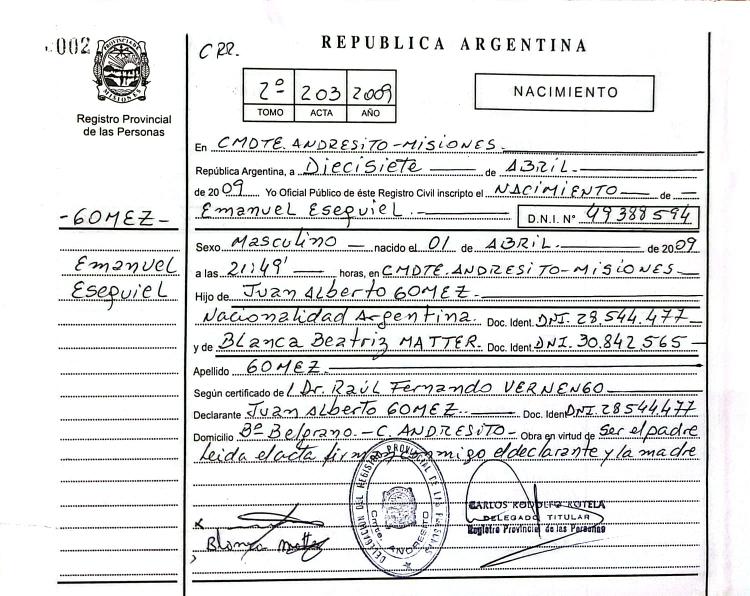 002
PROVINCIA DE
MISIONES
Registro Provincial
de las Personas
CRR.
REPUBLICA ARGENTINA
2º 203 2009
TOMO ACTA AÑO
NACIMIENTO
En CMDTE. ANDRESITO-MISIONES.
República Argentina, a Diecisiete de ABRIL.
de 2009 Yo Oficial Público de éste Registro Civil inscripto el NACIMIENTO de
Emanuel Esequiel. D.N.I. Nº 49388594
-GOMEZ-
Emanuel
Esequiel
Sexo Masculino nacido el 01 de ABRIL de 2009
a las 21:49' horas, en CMDTE. ANDRESITO-MISIONES
Hijo de Juan Alberto GOMEZ.
Nacionalidad Argentina. Doc. Ident. DNI. 28.544.477
y de Blanca Beatriz MATTER. Doc. Ident. DNI. 30.842.565
Apellido GOMEZ.
Según certificado de Dr. Raúl Fernando VERNENGO
Declarante Juan Alberto GOMEZ. Doc. Ident DNI. 28544477
Domicilio Bº Belgrano. - C. ANDRESITO- Obra en virtud de ser el padre
leida el acta firman conmigo el declarante y la madre
DELEGACION DEL REGISTRO PROVINCIAL DE LAS PERSONAS
Cmte. ANDRESITO
CARLOS RODOLFO ROTELA
DELEGADO TITULAR
Registro Provincial de las Personas
Blanca Matter